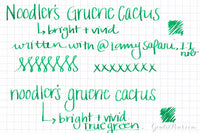 Noodler's Gruene Cactus
↳ bright + vivid
written with @ lamy safari, 1.1 nib
xxxxxxxx
noodler's gruene cactus
↳ bright + vivid
true green